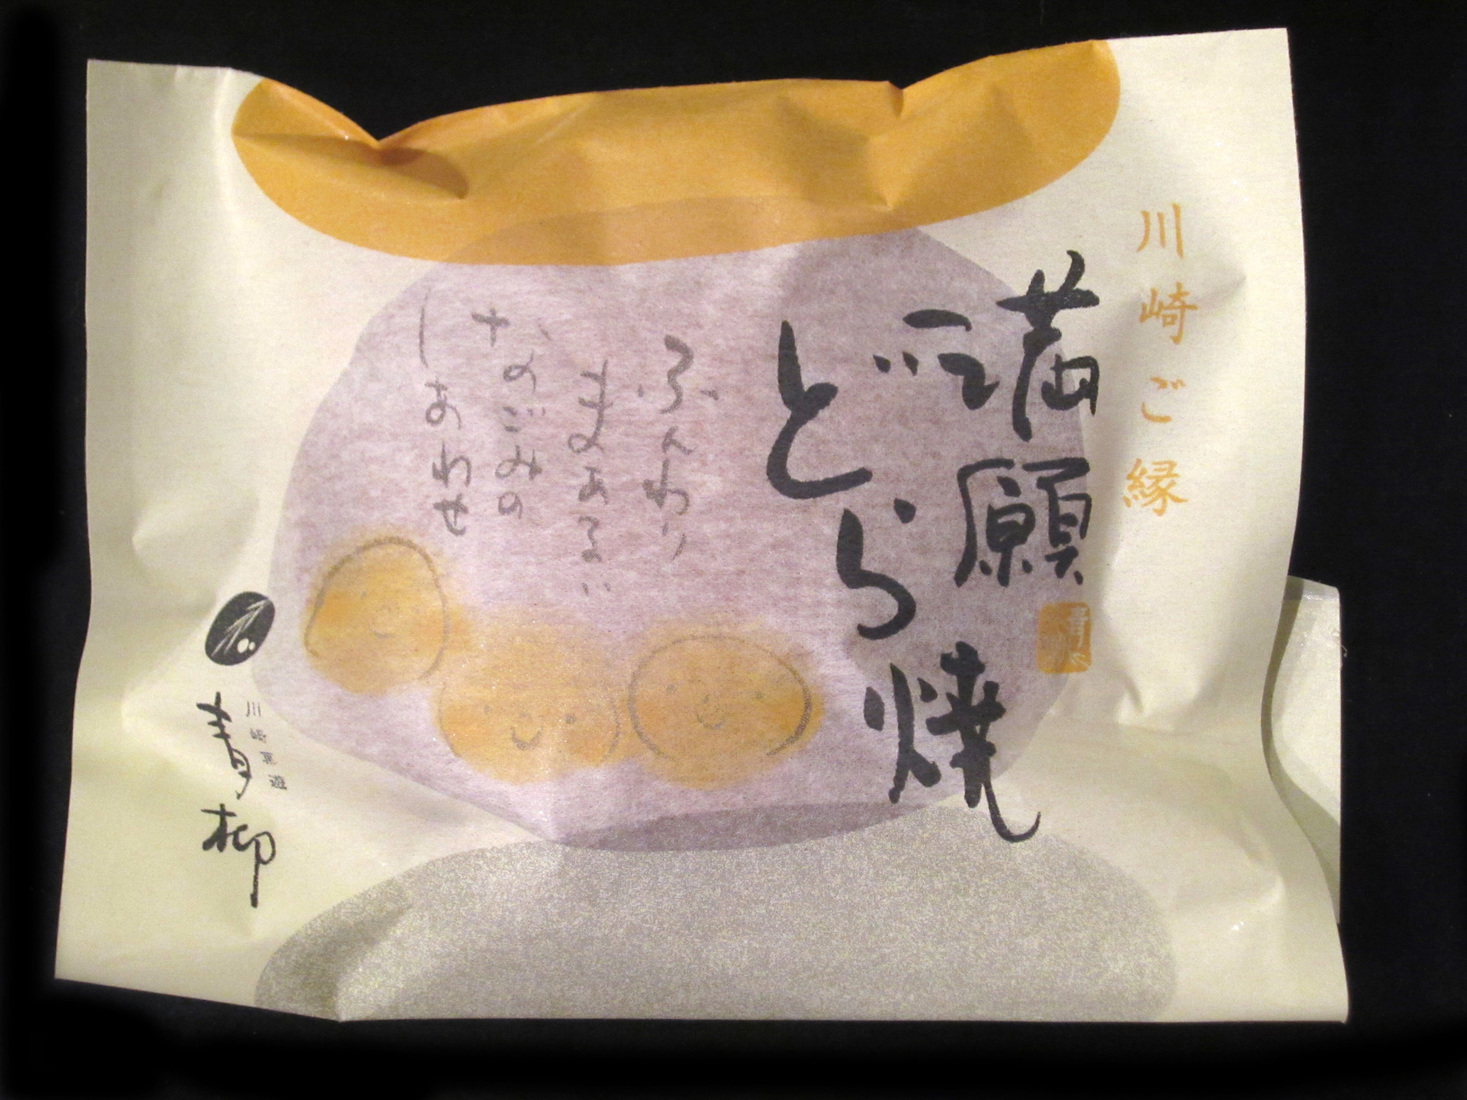 川崎ご縁
満願
どら焼
ふんわり
まあるい
なごみの
しあわせ
川崎
青柳